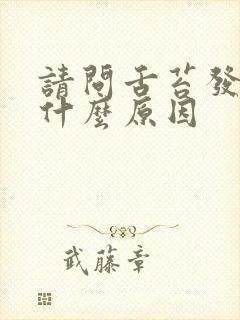 請問舌苔發
什麼原因
武藤章